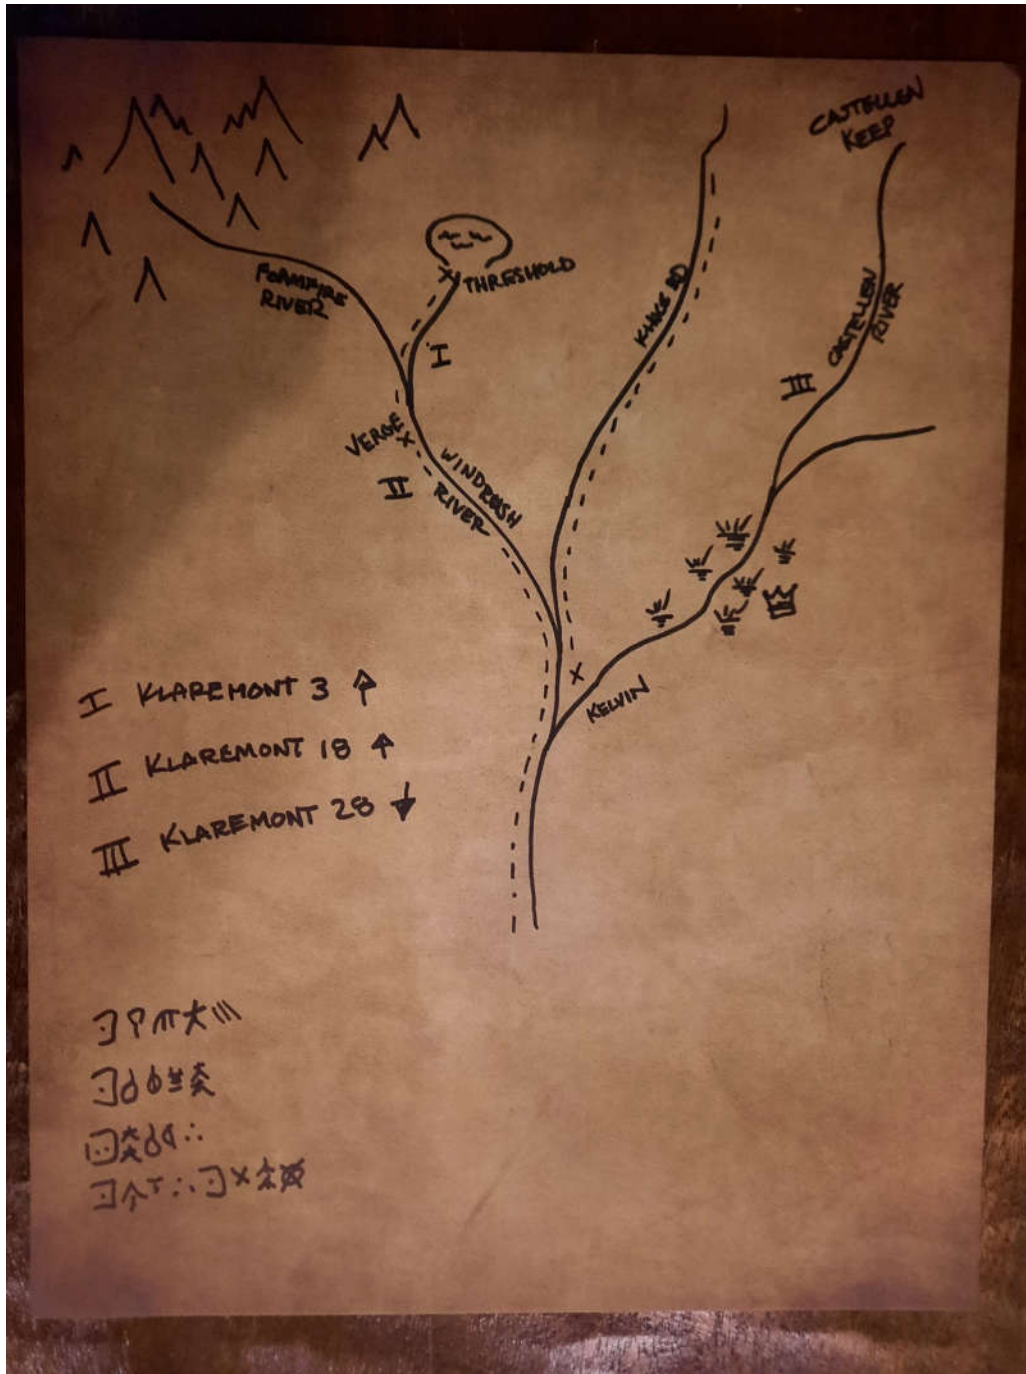 CASTELLEN
KEEP
FOAMFIRE
RIVER
THRESHOLD
KINGS RD
CASTELLEN
RIVER
I
III
VERGE
WINDRUSH
RIVER
II
KELVIN
I KLAREMONT 3 ↑
II KLAREMONT 18 ↑
III KLAREMONT 28 ↓